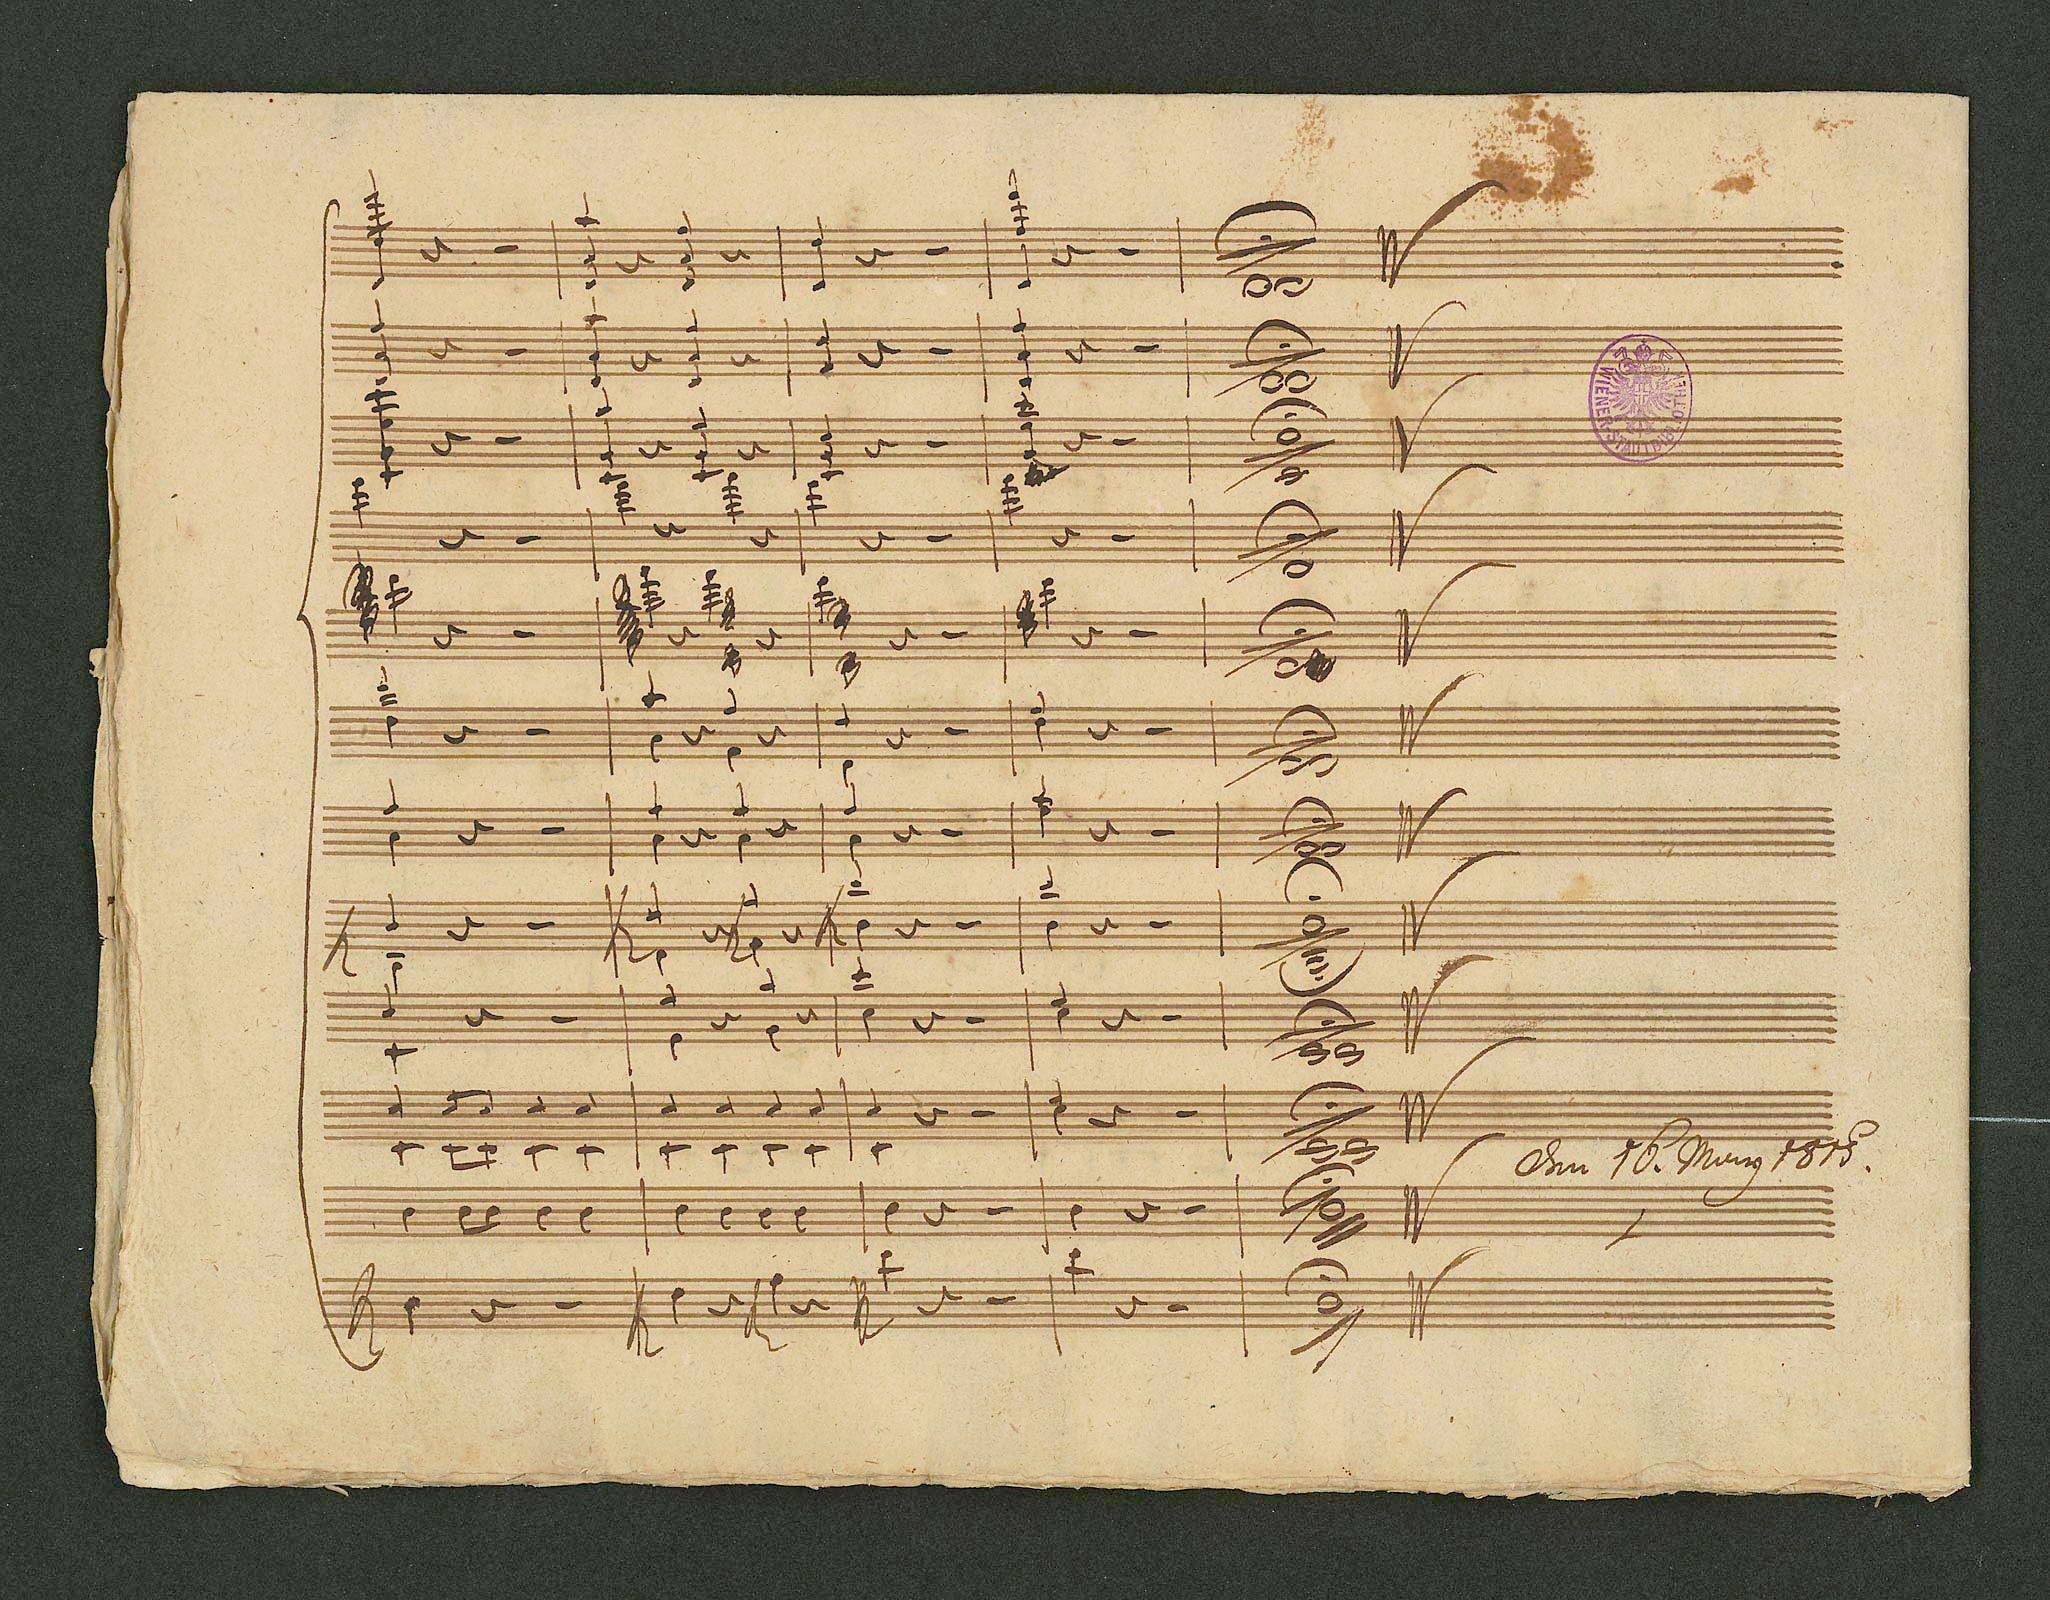 WIENER STADTBIBLIOTHEK
den 16. März 1815.